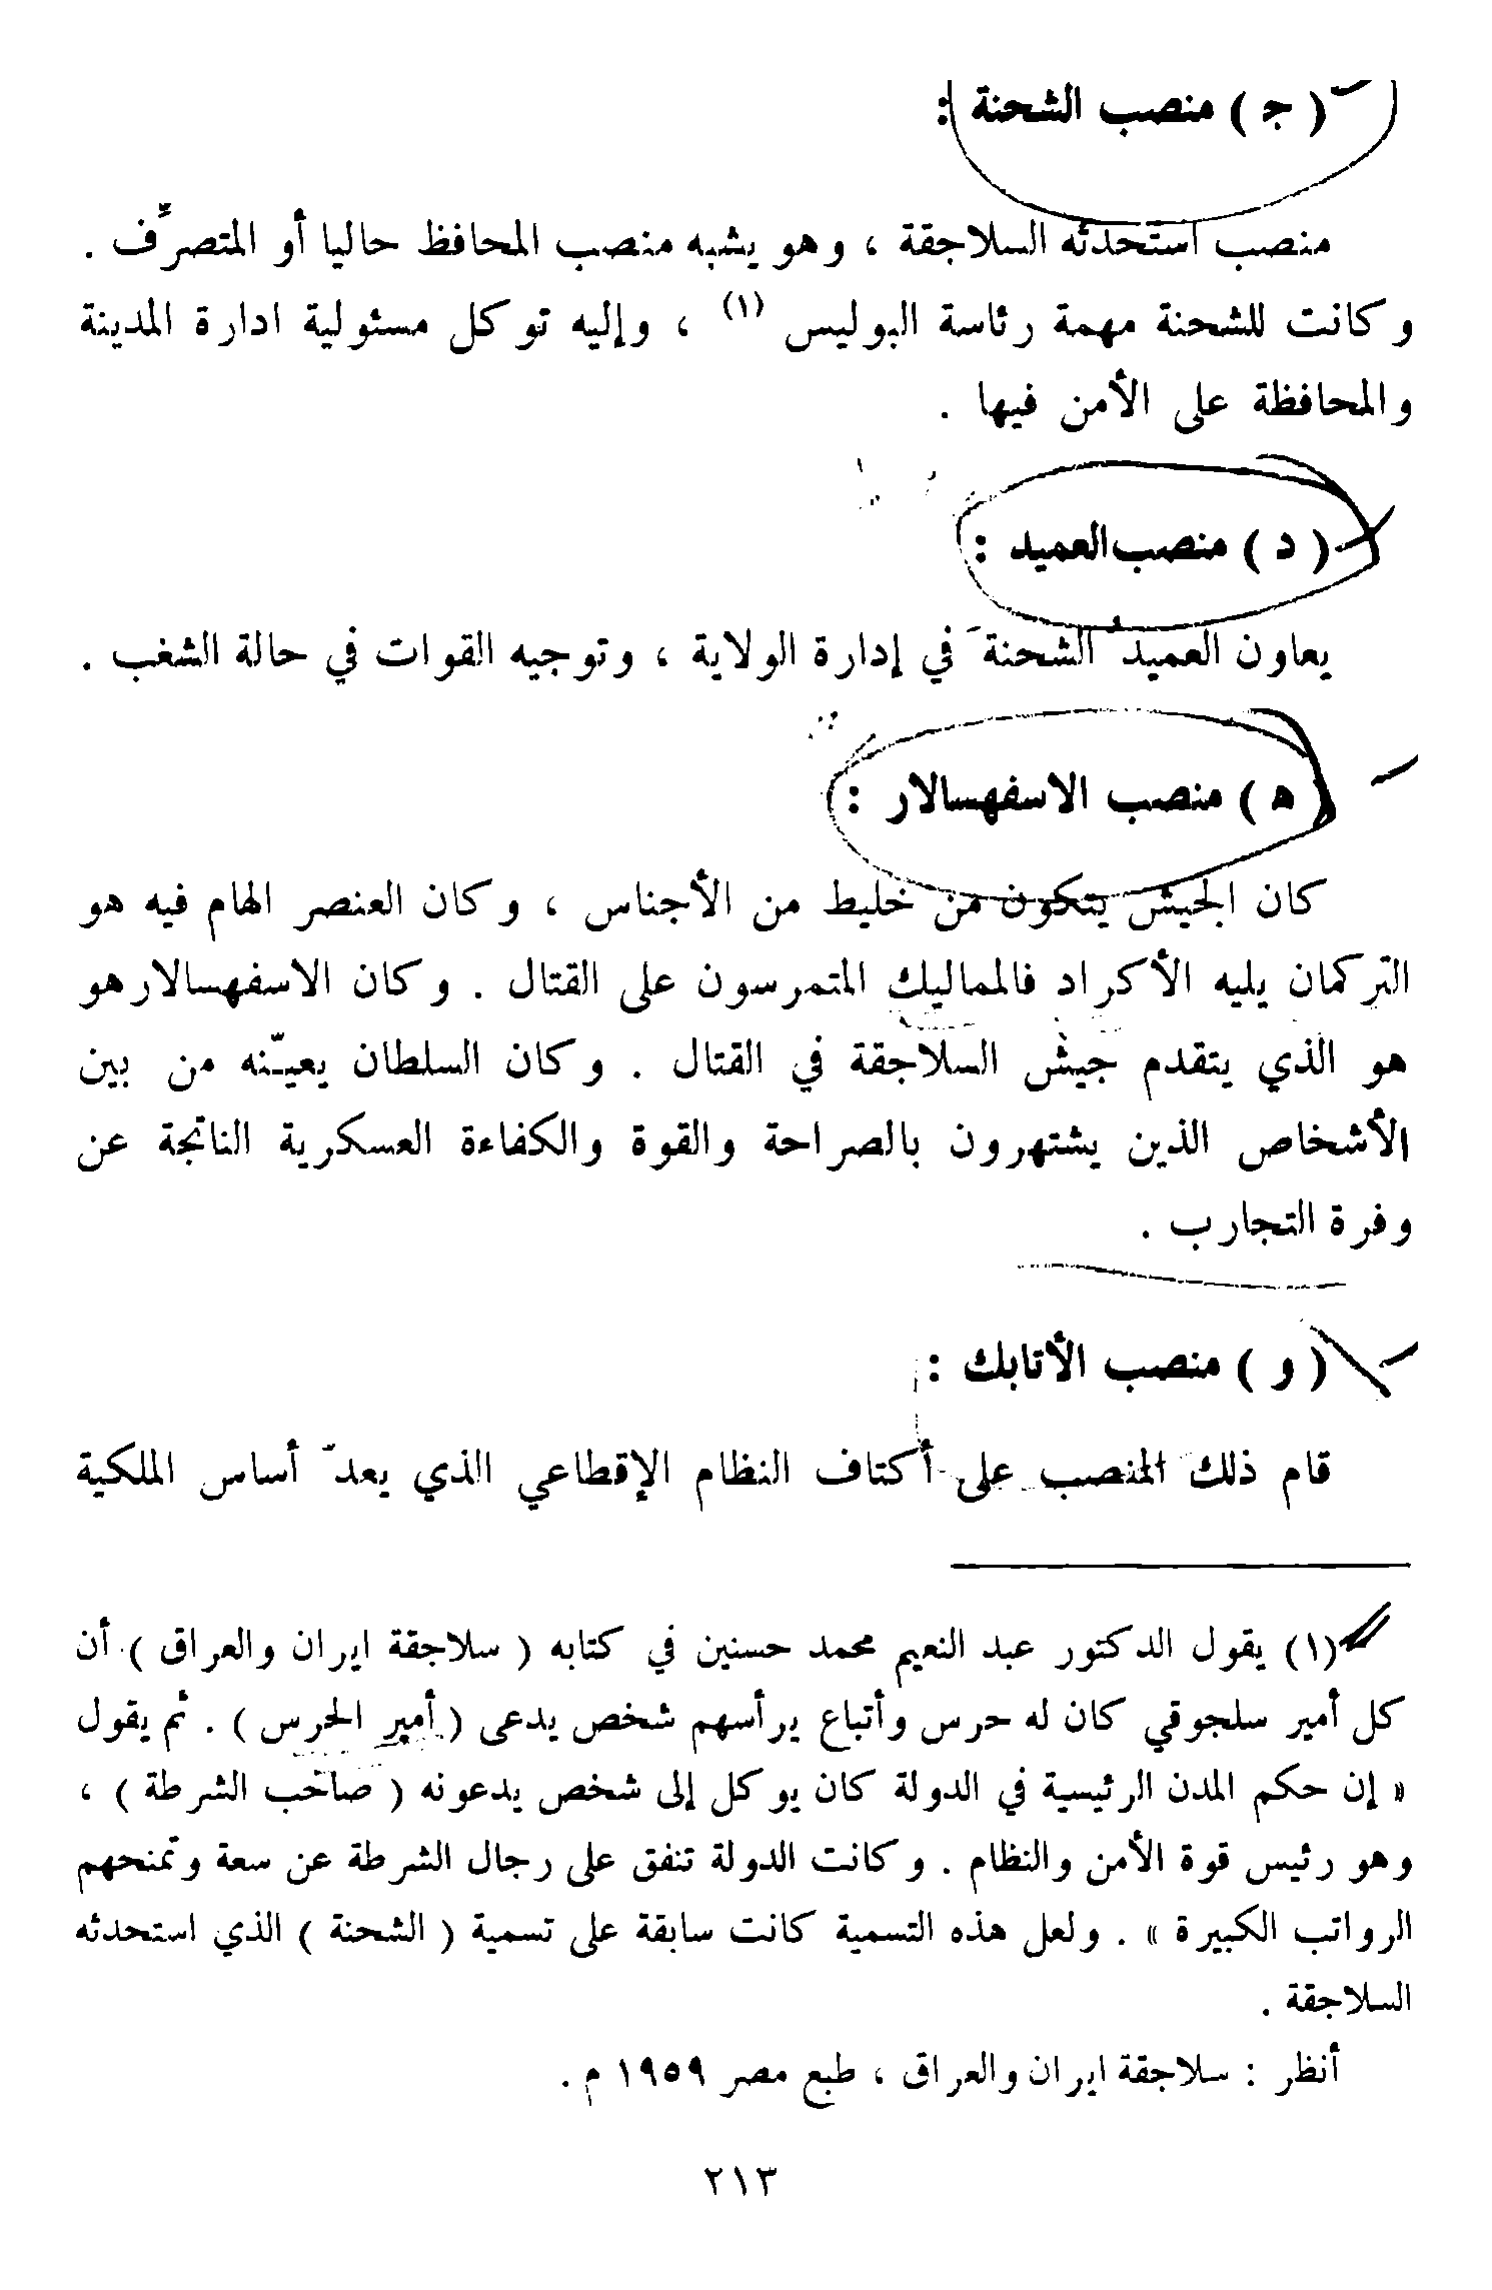 ( جـ ) منصب الشحنة :
منصب استحدثه السلاجقة ، وهو يشبه منصب المحافظ حاليا أو المتصرِّف .
وكانت للشحنة مهمة رئاسة البوليس (١) ، وإليه توكل مسئولية ادارة المدينة
والمحافظة على الأمن فيها .
( د ) منصب العميد :
يعاون العميدُ الشحنةَ في إدارة الولاية ، وتوجيه القوات في حالة الشغب .
( هـ ) منصب الاسفهسالار :
كان الجيش يتكون من خليط من الأجناس ، وكان العنصر الهام فيه هو
التركمان يليه الأكراد فالمماليك المتمرسون على القتال . وكان الاسفهسالار هو
هو الذي يتقدم جيش السلاجقة في القتال . وكان السلطان يعيّنه من بين
الأشخاص الذين يشتهرون بالصراحة والقوة والكفاءة العسكرية الناتجة عن
وفرة التجارب .
( و ) منصب الأتابك :
قام ذلك المنصب على أكتاف النظام الإقطاعي الذي يعدّ أساس الملكية
(١) يقول الدكتور عبد النعيم محمد حسنين في كتابه ( سلاجقة ايران والعراق ) أن
كل أمير سلجوقي كان له حرس وأتباع يرأسهم شخص يدعى ( أمير الحرس ) . ثم يقول
« إن حكم المدن الرئيسية في الدولة كان يوكل إلى شخص يدعونه ( صاحب الشرطة ) ،
وهو رئيس قوة الأمن والنظام . وكانت الدولة تنفق على رجال الشرطة عن سعة وتمنحهم
الرواتب الكبيرة » . ولعل هذه التسمية كانت سابقة على تسمية ( الشحنة ) الذي استحدثه
السلاجقة .
أنظر : سلاجقة ايران والعراق ، طبع مصر ١٩٥٩ م .
٢١٣